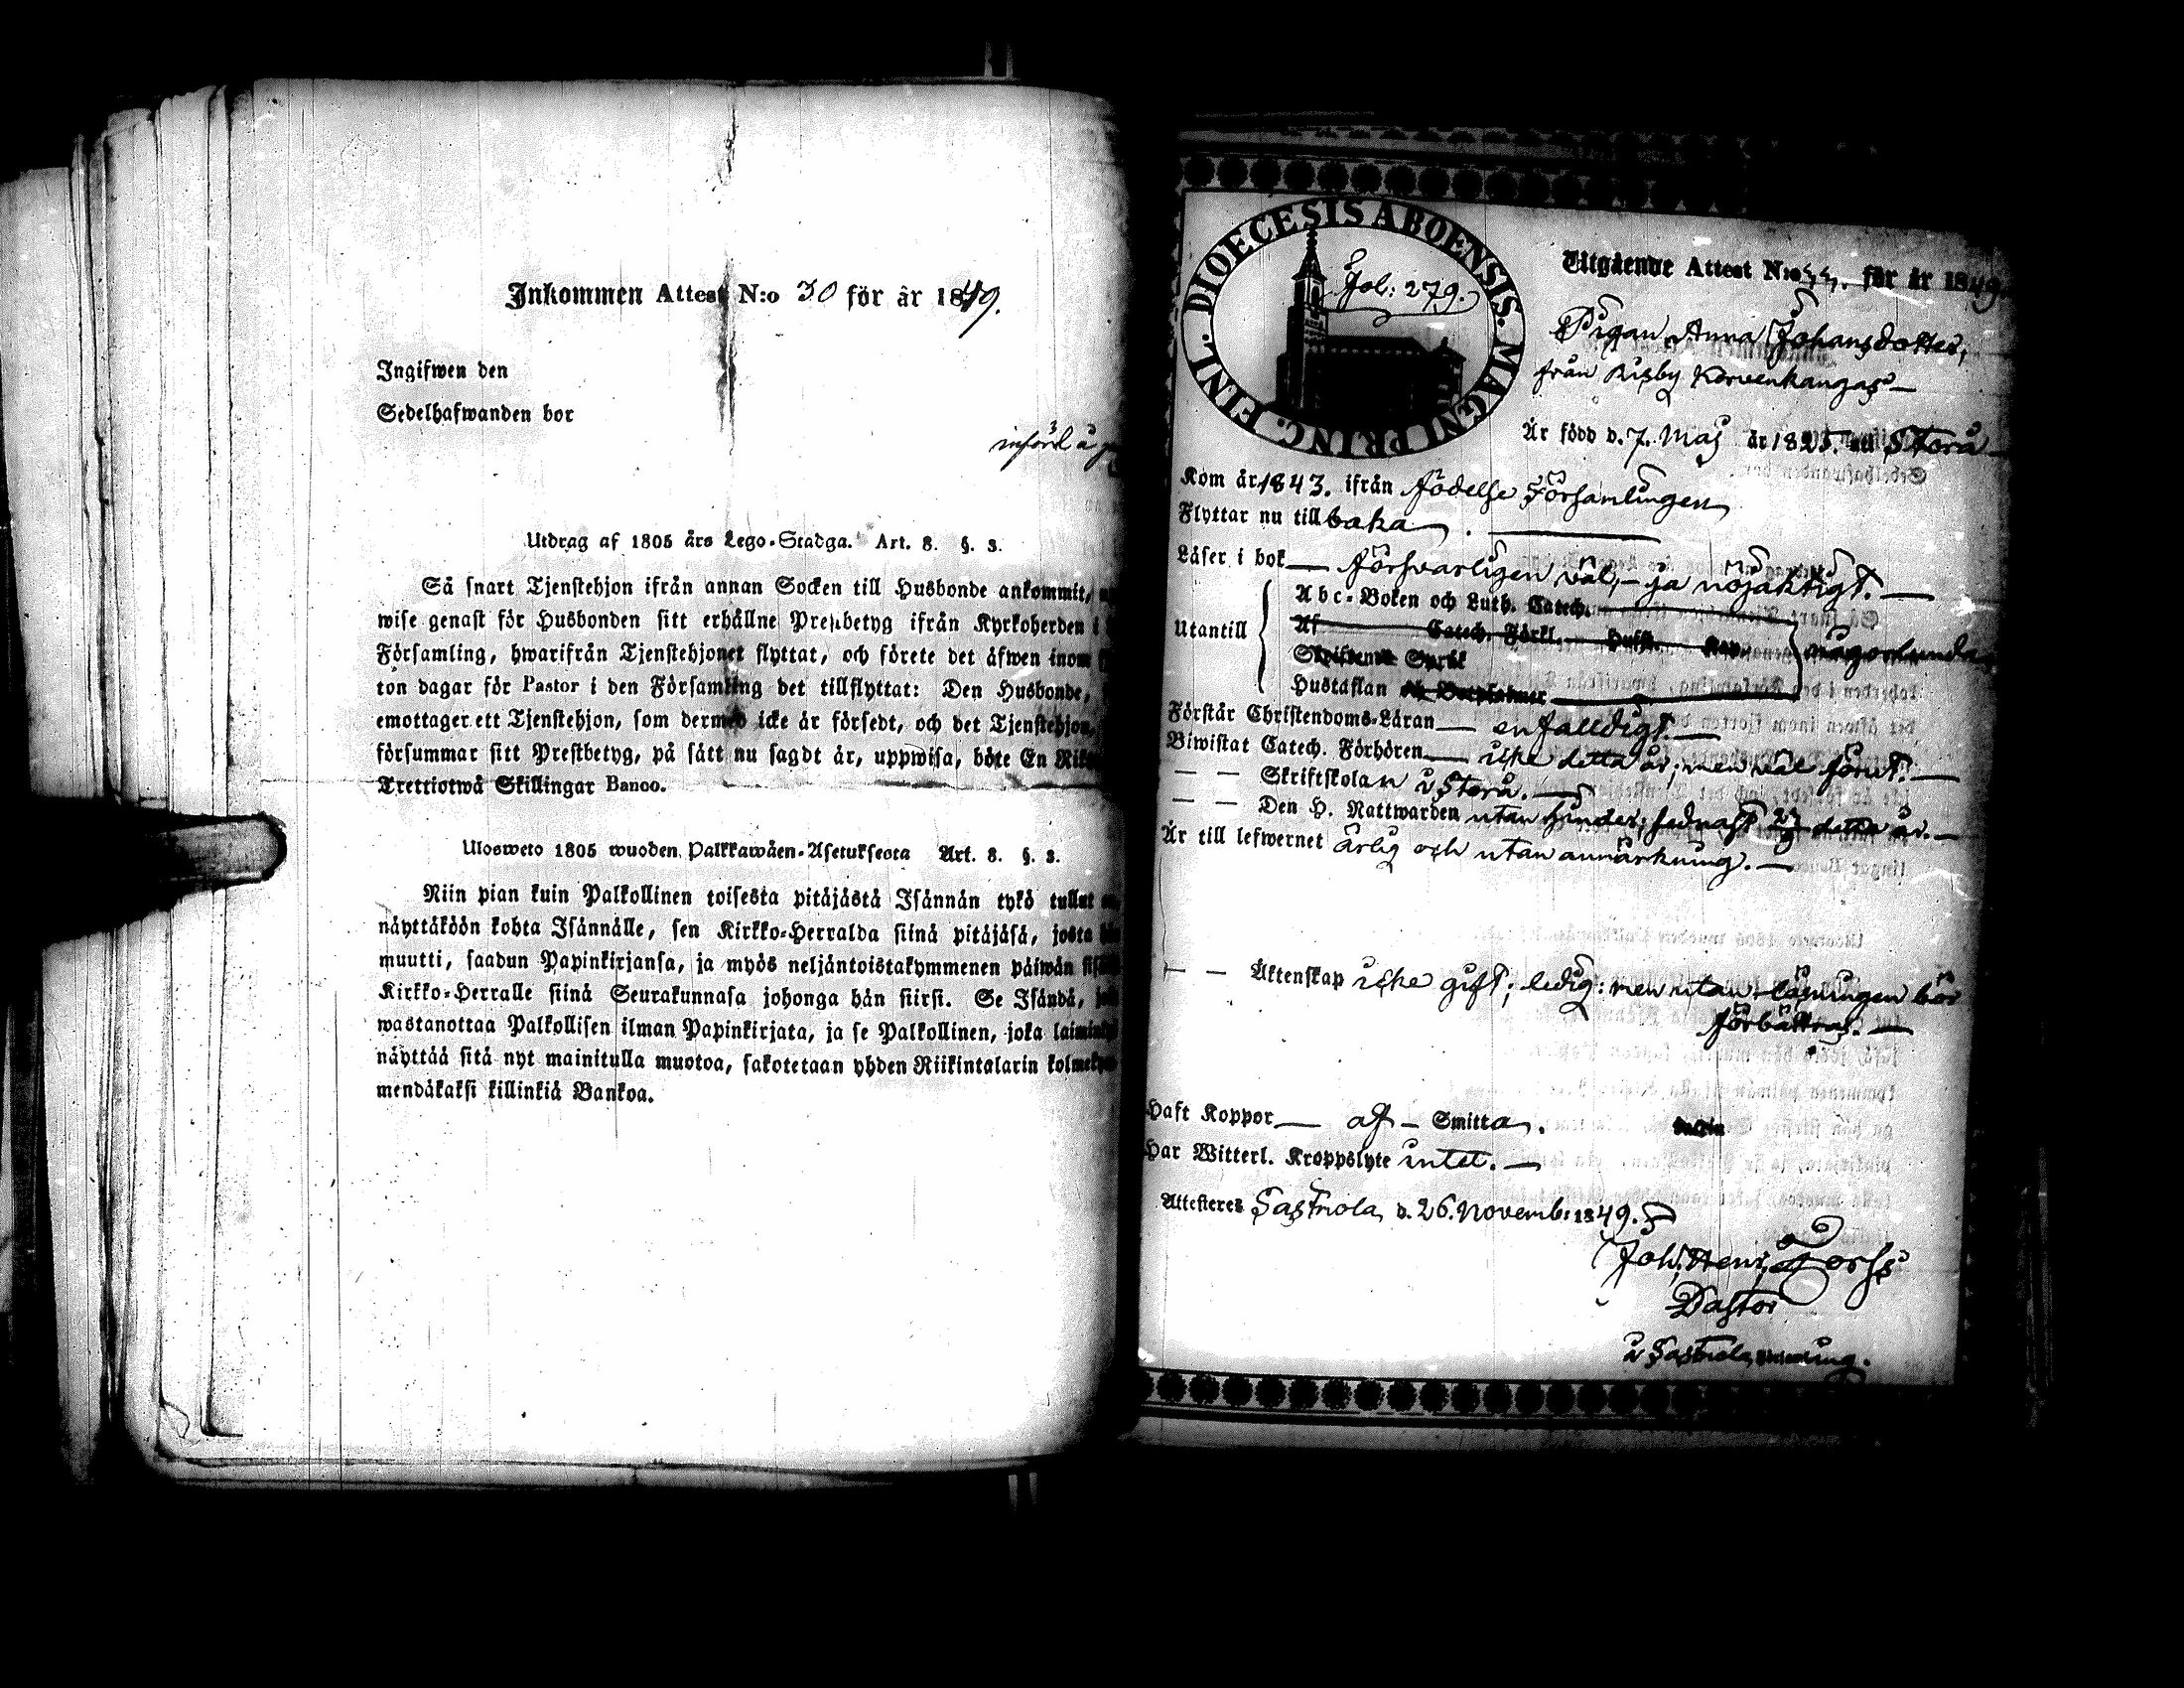 Inkommen Attest N:o 30 för år 1849.
Ingifwen den
Sedelhafwanden bor
införd å
Utdrag af 1805 års Lego-Stadga. Art. 8. §. 3.
Så snart Tjenstehjon ifrån annan Socken till Husbonde ankommit,
wise genast för Husbonden sitt erhållne Prestbetyg ifrån Kyrkoherden i
Församling, hwarifrån Tjenstehjonet flyttat, och förete det äfwen inom
ton dagar för Pastor i den Församling det tillflyttat: Den Husbonde,
emottager ett Tjenstehjon, som dermed icke är försedt, och det Tjenstehjon,
försummar sitt Prestbetyg, på sätt nu sagdt är, uppwisa, böte En
Trettiotwå Skillingar Banco.
Ulosweto 1805 wuoden Palkkawäen-Asetuksesta Art. 8. §. 3.
Niin pian kuin Palkollinen toisesta pitäjästä Isännän tykö tullut
näyttäköön kohta Isännälle, sen Kirkko-Herralda siinä pitäjäsä, josta
muutti, saadun Papinkirjansa, ja myös neljäntoistakymmenen päiwän
Kirkko-Herralle siinä Seurakunnasa johonga hän siirsi. Se Isändä,
wastanottaa Palkollisen ilman Papinkirjata, ja se Palkollinen, joka
näyttää sitä nyt mainitulla muotoa, sakotetaan yhden Riikintalarin
mendäkaksi killinkiä Bankoa.
DIOECESIS ABOENSIS. MAGNI PRINC. FINL.
Fol: 279.
Utgående Attest N:o för år 1849.
Pigan Anna Johansdotter,
från Risby Korvenkangas
År född d. 7. Maj år 1825. Storå
Kom år 1843. ifrån födelse Församlingen
Flyttar nu till baka.
Läser i bok försvarligen väl, ja nöjaktigt.
Abc-Boken och Luth. Catech.
Utantill Af Catech. Förkl. någorlunda
Skriftenes Språk
Hustaflan
Förstår Christendoms-Läran enfalldigt.
Biwistat Catech. Förhören icke detta år; men väl förut.
Skriftskolan i Storå.
Den H. Nattwarden utan hinder; sednast detta år.
Är till lefwernet ärlig och utan anmärkning.
Äktenskap icke gift; ledig: men utanläsningen bör
förbättras.
Haft Koppor af Smitta.
Har Witterl. Kroppslyte intet.
Attesteres Sastmola d. 26. Novemb: 1849.
Joh. Henr. Forss
Pastor
i Sastmola